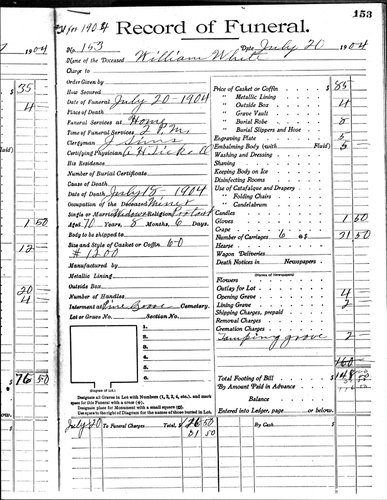 153
31 for 1904
Record of Funeral.
1904
No. 153
Date July 20 1904
Name of the Deceased William White
Charge to
Order Given by
How Secured
Date of Funeral July 20-1904
Place of Death
Funeral Services at Home
Time of Funeral Services 2 P.M.
Clergyman J
Certifying Physician
His Residence
Number of Burial Certificate
Cause of Death
Date of Death July 15-1904
Occupation of the Deceased Miner
Single or Married Widower Religion
Aged 70 Years 8 Months 6 Days
Body to be shipped to
Size and Style of Casket or Coffin 6-0
Manufactured by
Metallic Lining
Outside Box
Number of Handles
Interment at Cemetery.
Lot or Grave No. Section No.
1.
2.
3.
4.
5.
6.
(Diagram of Lot.)
Designate all Graves in Lot with Numbers (1, 2, 3, 4, etc.), and mark
space for this Funeral with a cross (+).
Designate place for Monument with a small square (□).
Use spare to right of Diagram for the names of those buried in Lot.
July 20 To Funeral Charges Total, $ 126 50
21 50
Price of Casket or Coffin $ 85
" Metallic Lining
" Outside Box 4
" Grave Vault
" Burial Robe 8
" Burial Slippers and Hose
Engraving Plate 5
Embalming Body (with Fluid) 5
Washing and Dressing
Shaving
Keeping Body on Ice
Disinfecting Rooms
Use of Catafalque and Drapery
" Folding Chairs
" Candelabrum
Candles
Gloves 1 50
Crape
Number of Carriages 6 @ $ 21 50
Hearse
Wagon Deliveries
Death Notices in Newspapers
(Names of Newspapers)
Flowers
Outlay for Lot
Opening Grave 4
Lining Grave 2
Shipping Charges, prepaid
Removal Charges
Cremation Charges
2
Total Footing of Bill $ 148
By Amount Paid in Advance
Balance
Entered into Ledger, page or below.
By Cash $
35
4
1 50
12
20
4
$ 76 50